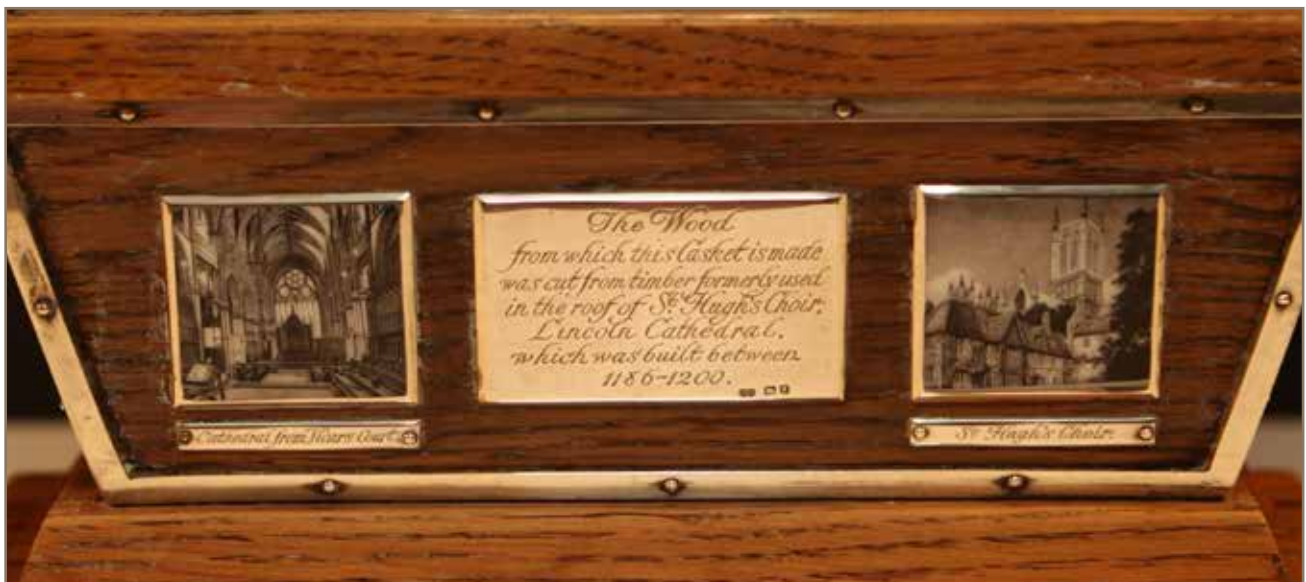 The Wood
from which this Casket is made
was cut from timber formerly used
in the roof of St. Hugh's Choir,
Lincoln Cathedral,
which was built between
1186-1200.
Cathedral from Vicars Court.
St Hugh's Choir.